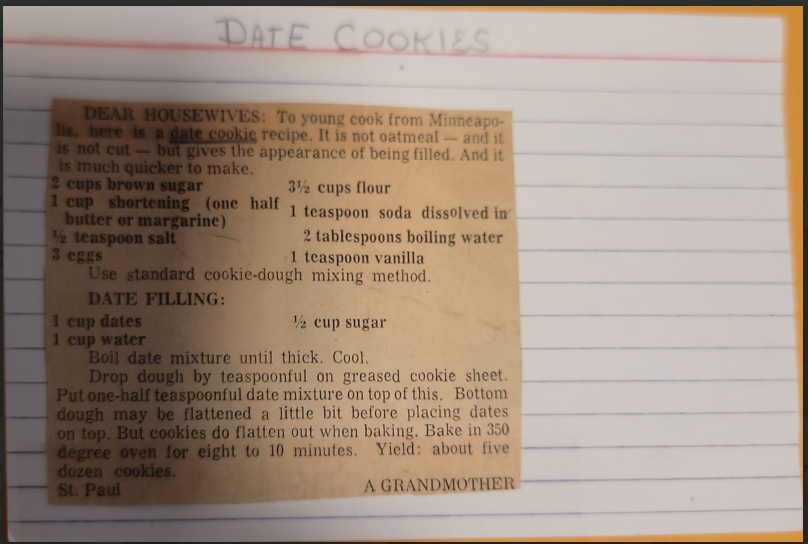 DATE COOKIES
DEAR HOUSEWIVES: To young cook from Minneapo-
lis, here is a date cookie recipe. It is not oatmeal — and it
is not cut — but gives the appearance of being filled. And it
is much quicker to make.
2 cups brown sugar
1 cup shortening (one half
butter or margarine)
½ teaspoon salt
3 eggs
3½ cups flour
1 teaspoon soda dissolved in
2 tablespoons boiling water
1 teaspoon vanilla
Use standard cookie-dough mixing method.
DATE FILLING:
1 cup dates
1 cup water
½ cup sugar
Boil date mixture until thick. Cool.
Drop dough by teaspoonful on greased cookie sheet.
Put one-half teaspoonful date mixture on top of this. Bottom
dough may be flattened a little bit before placing dates
on top. But cookies do flatten out when baking. Bake in 350
degree oven for eight to 10 minutes. Yield: about five
dozen cookies.
St. Paul A GRANDMOTHER